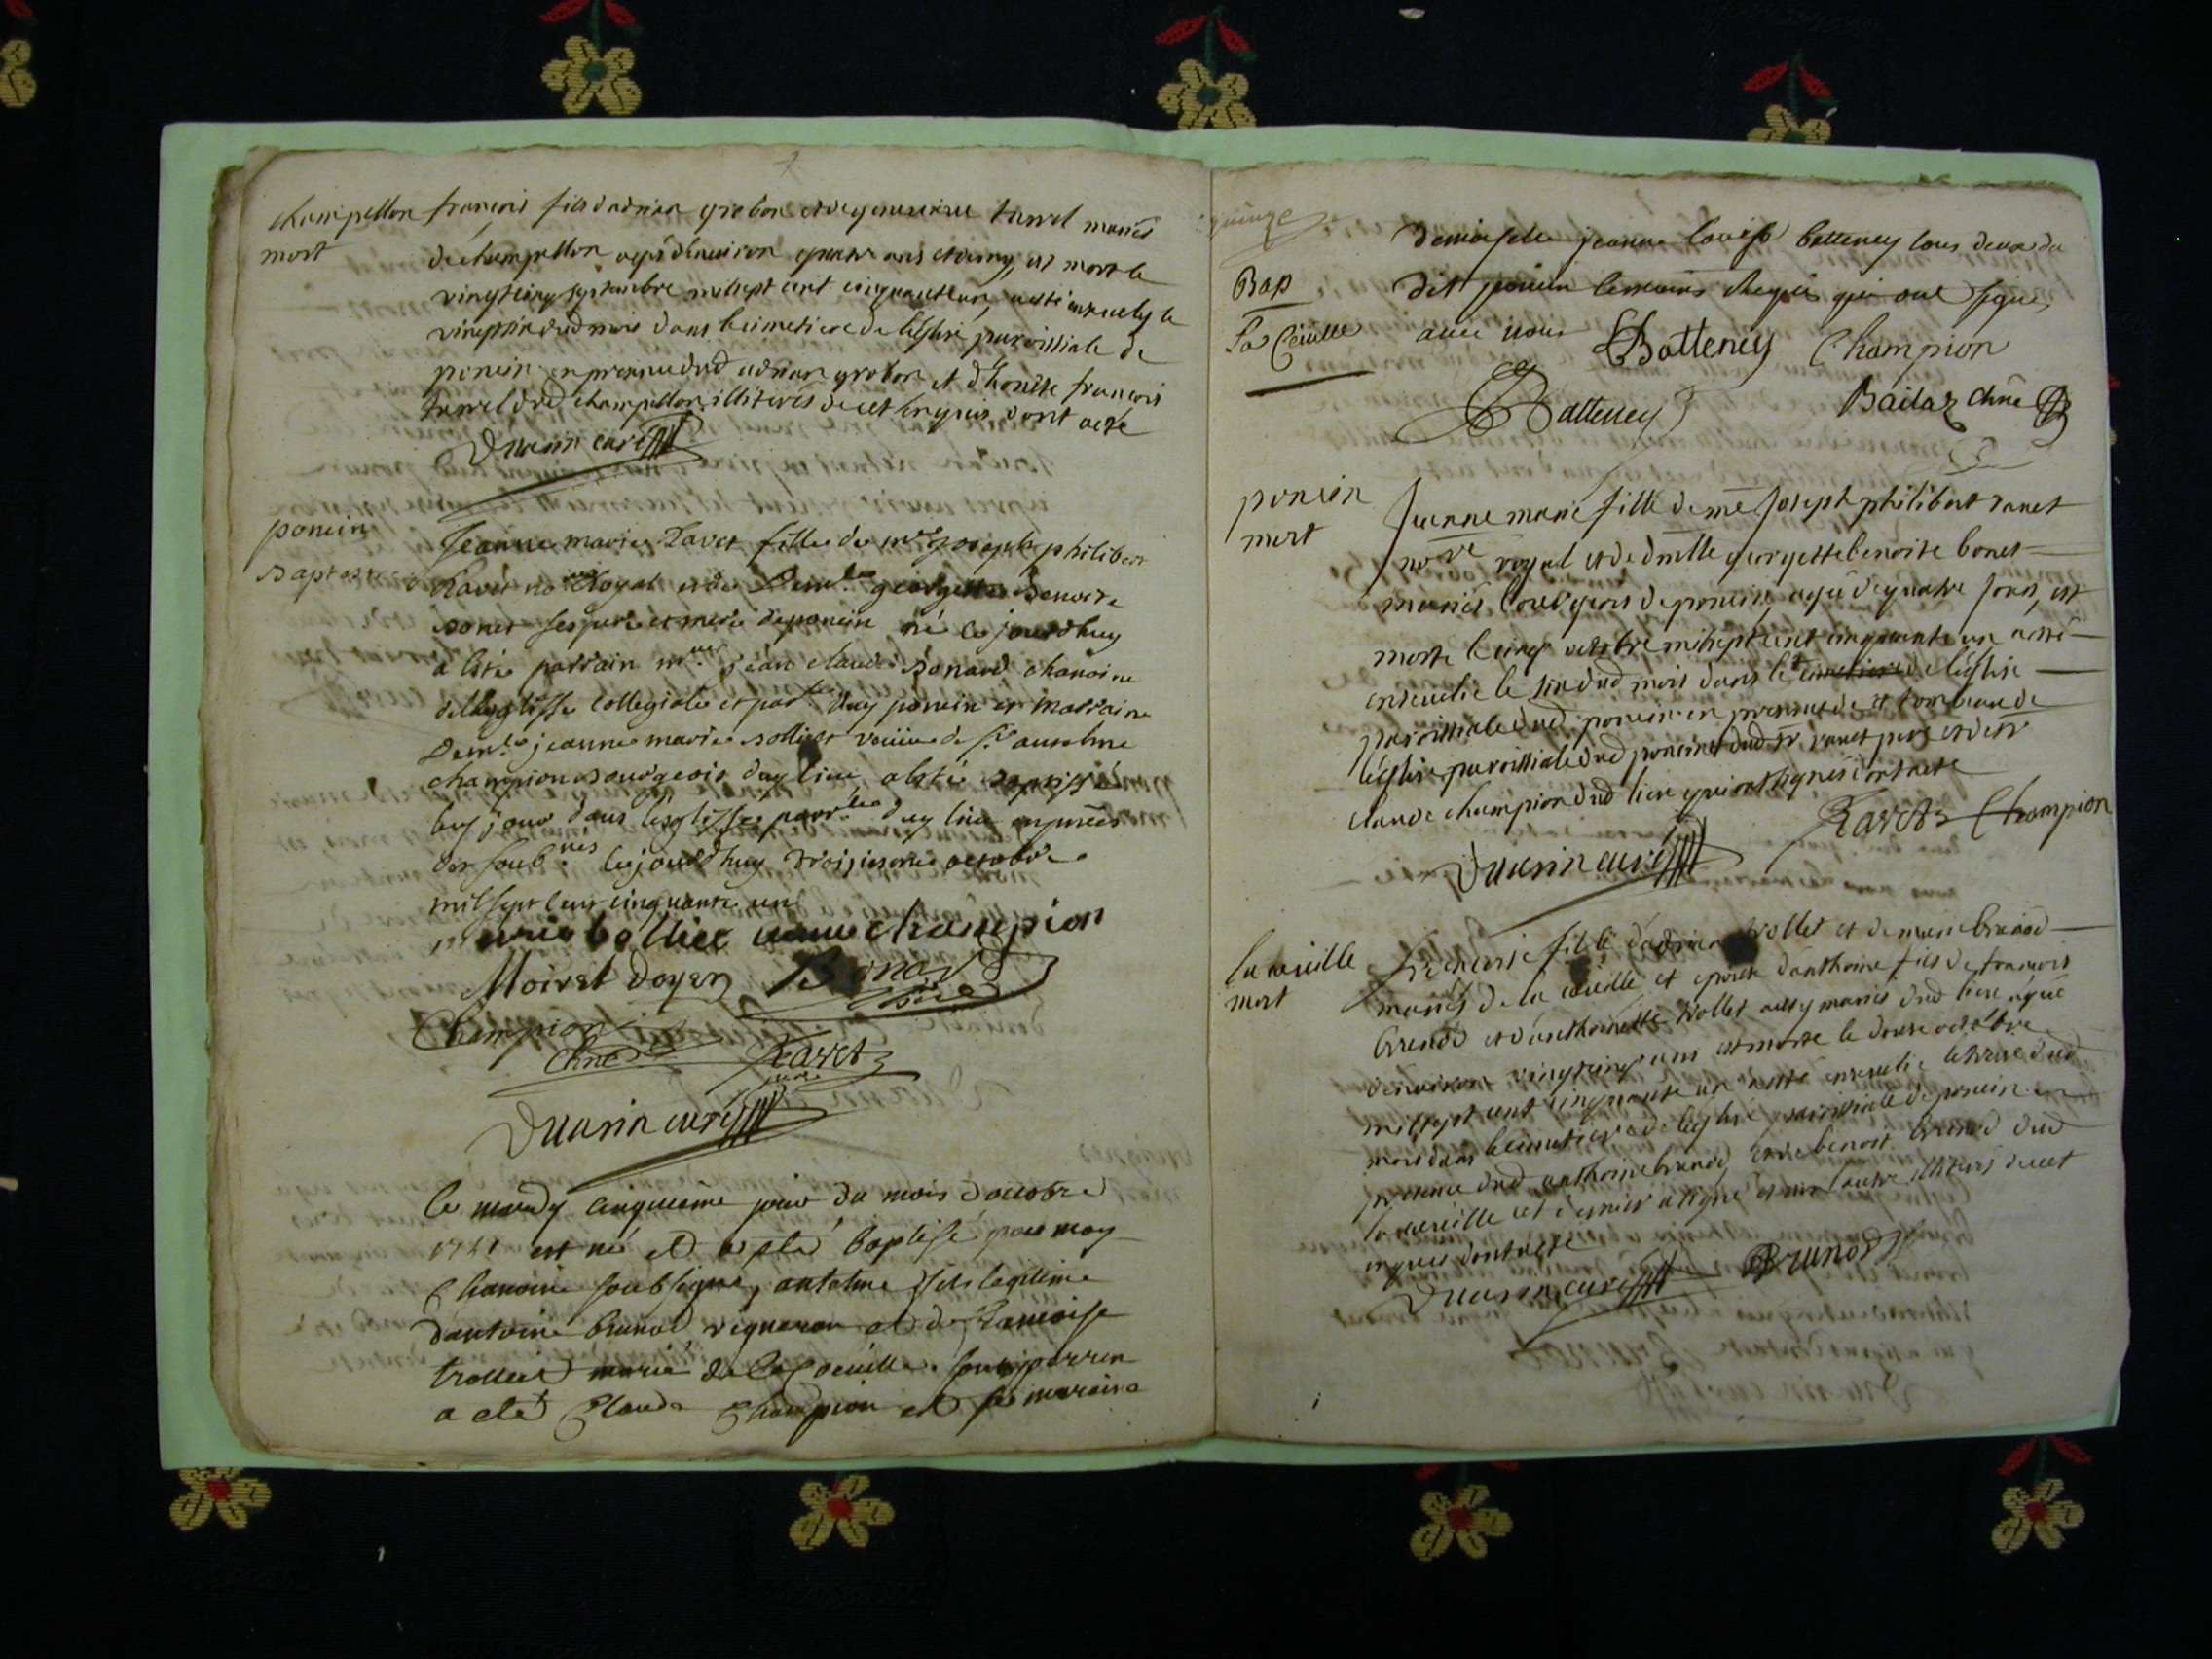 champellon françois fils dadrian grobon et de genevieve tarrel mariés
mort
de champellon agé denviron quatre ans et demy, est mort le
vingt cinq septembre mil sept cent cinquante un, a esté ensevely le
vingt six dud mois dans le cimetiere de leglise paroissiale de
poncin en presence dud adrian grobon et dhonête françois
tarrel dud champellon illiterés de cet enquis dont acte
curé
poncin
baptesme
Jeanne marie Ravet fille de mre Joseph philibert
Ravet nore Royal et de Demlle georgette Benoite
bonet ses pere et mere de poncin né ce jourdhuy
a esté parrain mre jean claude Bonard chanoine
de leglisse collegiale et parlle duy poncin et marraine
Demlle jeanne marie bolliet veuve de sr anselme
champion bourgeois duy lieu a esté baptissé
led jour dans leglisse parrlle duy lieu en presence
des soubnés cejourdhuy troisieme octobre
mil sept cent cinquante un
marie bolliet veuve champion
Moiret doyen Bonard
Champion
chne Ravet
curé
le mardy cinquieme jour du mois doctobre
1751 est né et a eté baptisé par moy
Chanoine soubsigné, antoine fils legitime
dantoine brunod vigneron et de francoise
trollet marié de la coeuille. son parrin
a eté Claude Champion et sa maraine
quinze
demoiselle jeanne louise batteney tous deux du
Bap dit poncin les enquis qui ont signé
La Ceuille avec nous Batteney Champion
Batteney Bailaz chne
poncin
mort
Jeanne marie fille de me Joseph philibert ravet
nore royal et de dmlle georgette benoite bonet
mariés bourgeois de poncin, agée de quatre jours, est
morte le cinq octobre mil sept cent cinquante un a esté
ensevelie le six dud mois dans le cimetiere de leglise
paroissiale dud poncin en presence de et tombeau de
léglise paroissiale dud poncin et dud sr ravet pere et de sr
claude champion dud lieu qui ont signés dont acte
Ravet Champion
curé
la coeuille
mort
françoise fille dadrian trollet et de marie brunod
mariés de la coeuille et epouse danthoine fils de francois
brunod et danthoinette trollet aussy mariés dud lieu agée
denviron vingt cinq ans est morte le douse octobre
mil sept cent cinquante un a esté ensevelie le treise dud
mois dans le cimetiere de leglise paroissiale de poncin en
presence dud anthoine brunod et de benoit brunod dud
la coeuille cet dernier a signé et non lautre illiteré de cet
enquis dont acte
curé Brunod